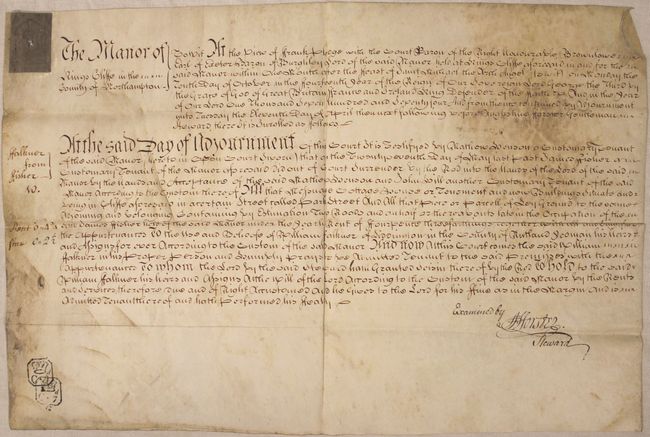 The Manor of
Kings Cliffe in the
County of Northampton
To wit At the View of Frank Pledge with the Court Baron of the Right Honourable Brownlow
Earl of Exeter Baron of Burghley Lord of the said Manor held at Kings Cliffe aforesaid in and for the
said Manor within One Month after the Feast of Saint Michael the Arch Angel to wit on
the Day of October in the fourteenth Year of the Reign of Our Sovereign Lord George the Third by
the Grace of God of Great Britain France and Ireland King Defender of the Faith &c And in the Year
of Our Lord One Thousand Seven Hundred and Seventy four And from thence continued by Adjournment
unto Tuesday the Eleventh Day of April then next following before Gentleman
Steward there It is Enrolled as follows
Falkner
from
Fisher
At the said Day of Adjournment Of this Court It is Testifyed by Mathew a Customary Tenant
of the said Manor here in Open Court Sworn that on the Twenty Seventh Day of May last Past James Fisher a
Customary Tenant of the Manor aforesaid did out of Court Surrender by the Rod into the Hands of the Lord of the said
Manor by the hands and Acceptance of the said Mathew and John Hill another Customary Tenant of the said
Manor According to the Custom thereof All that Messuage Cottage House or Tenement and Situate and
being in Cliffe aforesaid in a certain Street called Park Street And All that Piece or Parcel of Ley Ground to the same
Adjoining and belonging Containing by Estimation Two Roods and an half or thereabouts late in the Occupation of the
said James Fisher held of the said Manor under the Yearly Rent of Fourpence three farthings together with
the Appurtenances to the Use and Behoof of William Falkner of in the County of Rutland Yeoman his Heirs
and Assigns for ever According to the Custom of the said Manor And now At this Court comes the said William
Falkner in his Proper Person and humbly Prays to be Admitted Tenant to the said Premises with the
Appurtenances to whom the Lord by the said Steward hath Granted Seizin thereof by the Rod to hold to the said
William Falkner his Heirs and Assigns At the Will of the Lord According to the Custom of the said Manor by the Rents
and Services therefore due and of Right Accustomed And he Gives to the Lord for his Fine as in the Margin And is
Admitted Tenant thereof and hath Performed his Fealty
Examined by
Steward